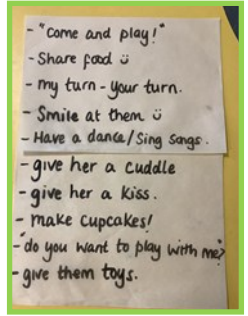 - "Come and play!"
- Share food ü
- my turn - your turn.
- Smile at them ü
- Have a dance/Sing Songs.
- give her a cuddle
- give her a kiss.
- make cupcakes!
- "do you want to play with me?"
- give them toys.